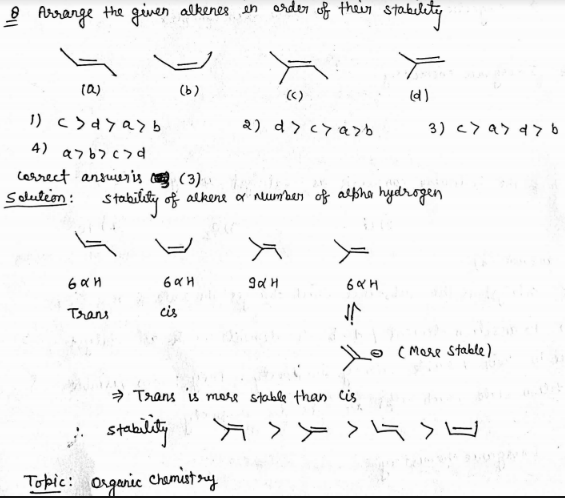 Q Arrange the given alkenes in order of their stability
(a) (b) (c) (d)
1) c > d > a > b 2) d > c > a > b 3) c > a > d > b
4) a > b > c > d
correct answer is (3)
Solution: stability of alkene α number of alpha hydrogen
6αH 6αH 9αH 6αH
Trans cis
⇌
⊖ (More stable)
⇒ Trans is more stable than cis
∴ stability > > >
Topic: Organic chemistry